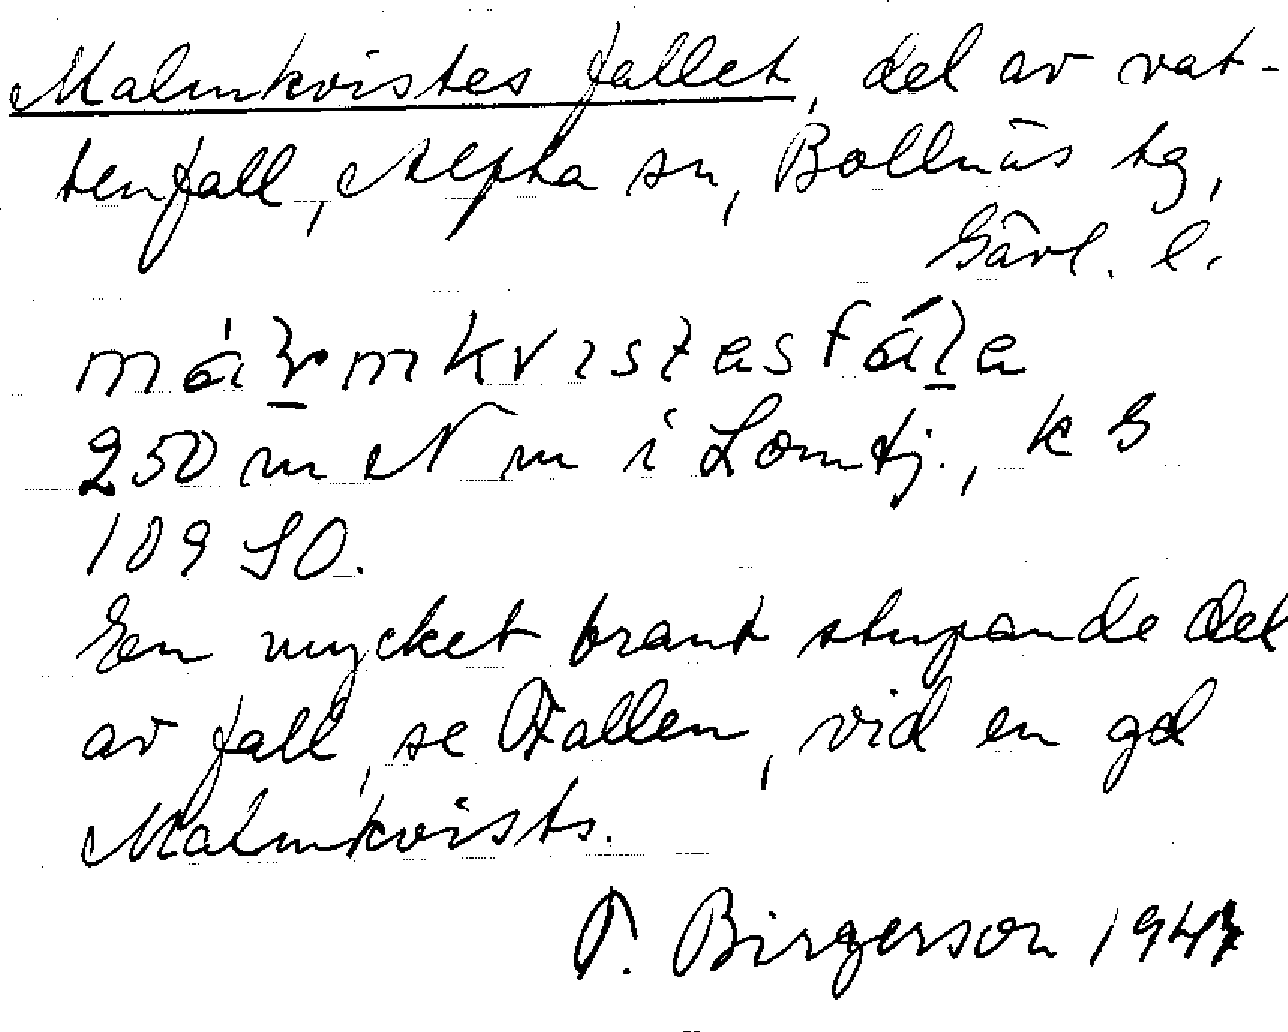 Malmkvistes fallet, del av vat-
tenfall, Alfta sn, Bollnäs tg,
Gävl. l.
250 m N m i Lomtj., k G
109 SO.
En mycket brant stupande del
av fall, se Fallen, vid en gd
Malmkvists.
T. Birgerson 1947